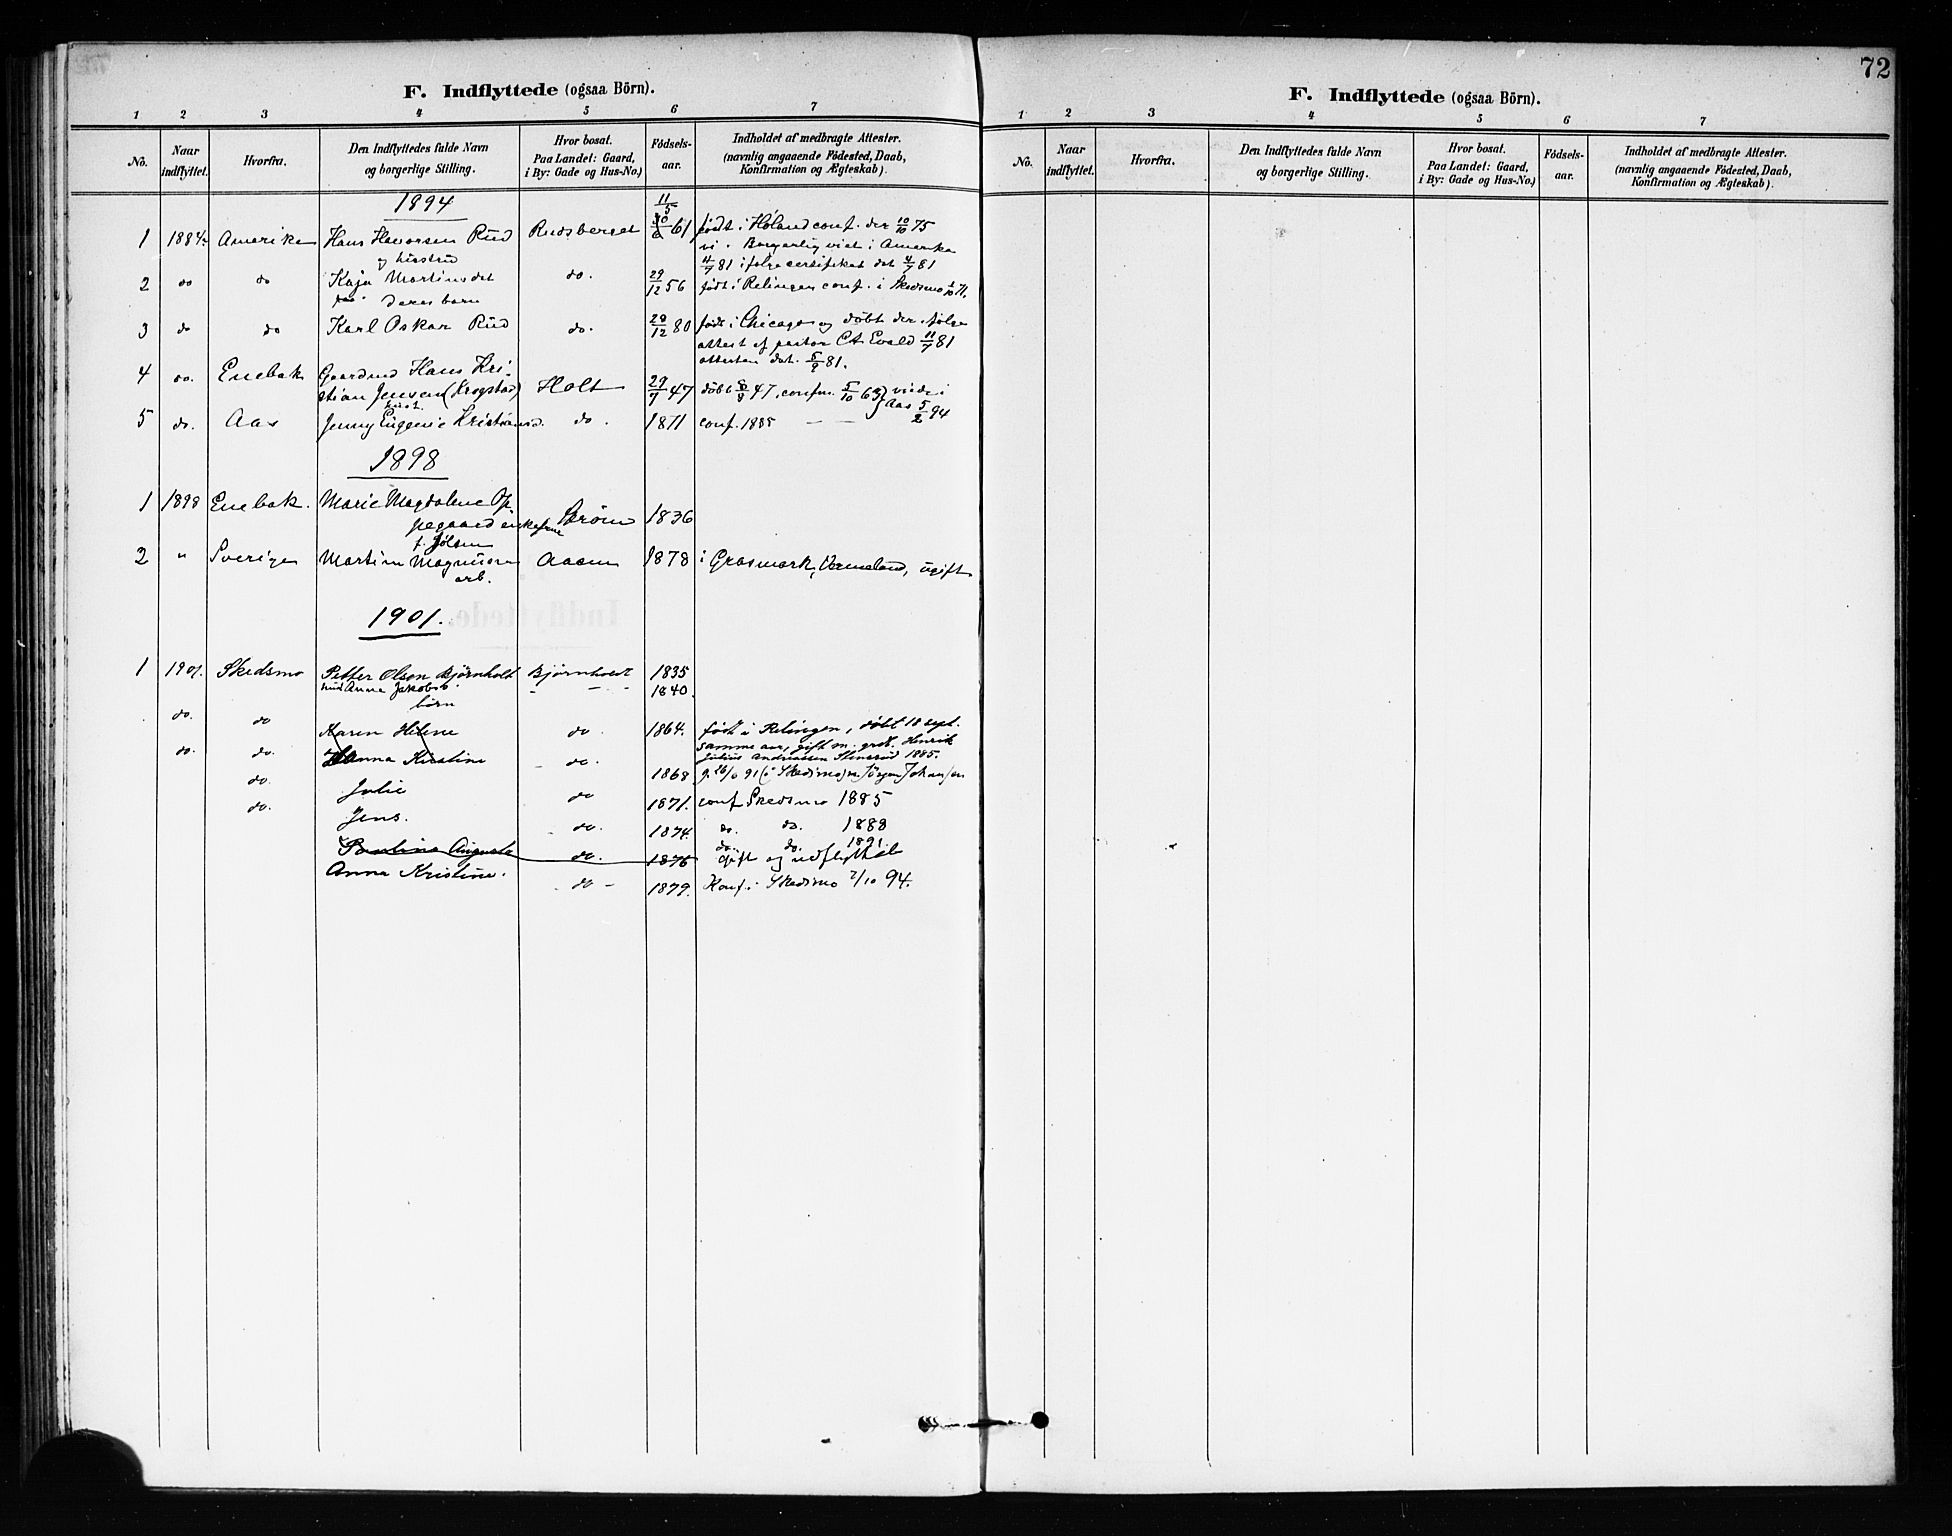 72
F. Indflyttede (ogsaa Börn).
1 2 3 4 5 6 7
No. Naar indflyttet. Hvorfra. Den Indflyttedes fulde Navn og borgerlige Stilling. Hvor bosat. Paa Landet: Gaard, i By: Gade og Hus-No.) Födsels-aar. Indholdet af medbragte Attester. (navnlig angaaende Födested, Daab, Konfirmation og Ægteskab).
1894
11/5
1 1884. Amerika Hans Havorsen Rud Rudsberget 61 født i Høland conf. der 10/10 75
og hustru vi. Borgerlig viet i Amerika
4/7 81 ifølge certifikat dat 4/7 81
2 do do Kaja Martinsdat do. 29/12 56 født i Relingen conf. i Skedsmo 71.
deres barn
3 do do Karl Oskar Rud do. 29/12 80 født i Chicago og døbt der ifølge
attest af pastor CA Evald 11/7 81
attesten dat. 5/9 81.
4 do. Enebak Gaardmd Hans Kri-
stian Jensen (Krogstad) Holt 29/7 47 døbt 47, confm. 5/10 63 } viede i
5 do. Aas Jenny Eugenie Kristians d. do. 1871 conf. 1885 — — Aas 5/2 94
1898
1 1898 Enebak. Marie Magdalene Op
pegaard enkefrue Strøm 1836
f. Jølsen
2 " Sverige Martin Magnuson Aaen 1878 i Grasmark, Vermeland, ugift
arb.
1901.
1 1901. Skedsmo Petter Olson Bjørnholt Bjørnholt 1835
Anna Jakobsd. - — - 1840.
børn
do. do Karen Helene do 1864. født i Relingen, døbt 18 sept.
samme aar, gift m. grdk. Henrik
Julius Andreassen Stenerud 1885.
do. do. Hanna Kristine do. 1868 g. 26/10 91 (i Skedsmo) m. Jørgen Johansen
do. Julie do 1871. conf Skedsmo 1885
do. Jens. do. 1874. do. do. 1888
do. do. 1891
Paulina Augusta do. 1876 gift og udflyttet
Anna Kristine. - do - 1879. Konf. i Skedsmo 2/10 94.
F. Indflyttede (ogsaa Börn).
1 2 3 4 5 6 7
No. Naar indflyttet. Hvorfra. Den Indflyttedes fulde Navn og borgerlige Stilling. Hvor bosat. Paa Landet: Gaard, i By: Gade og Hus-No.) Födsels-aar. Indholdet af medbragte Attester. (navnlig angaaende Födested, Daab, Konfirmation og Ægteskab).